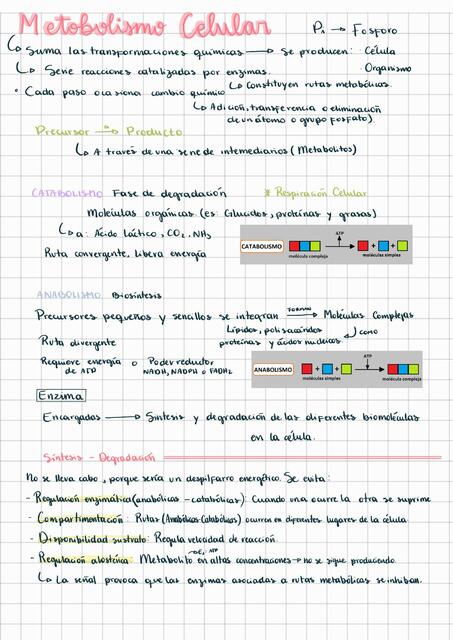 Metabolismo Celular
Pi → Fosforo
↳ Suma las transformaciones químicas → se producen: Célula
Organismo
↳ Serie reacciones catalizadas por enzimas.
↳ Constituyen rutas metabólicas.
• Cada paso ocasiona cambio químico
↳ Adición, transferencia o eliminación
de un átomo o grupo fosfato)
Precursor → Producto
↳ A través de una serie de intermediarios (Metabolitos)
CATABOLISMO Fase de degradación
* Respiración Celular
Moléculas orgánicas (es: Glúcidos, proteínas y grasas)
↳ a: Ácido láctico, CO2, NH3
Ruta convergente, Libera energía
CATABOLISMO
ATP
+ +
molécula compleja
moléculas simples
ANABOLISMO Biosíntesis
Precursores pequeños y sencillos se integran → Moléculas Complejas
Lípidos, polisacáridos como
proteínas y ácidos nucleicos
Ruta divergente
Requiere energía o Poder reductor
de ATP NADH, NADPH o FADH2
ANABOLISMO
ATP
+ +
moléculas simples
molécula compleja
Enzima
Encargadas → Síntesis y degradación de las diferentes biomoléculas
en la célula.
Síntesis - Degradación
No se lleva cabo, porque sería un despilfarro energético. Se evita:
- Regulación enzimática (anabólicas - catabólicas): Cuando una ocurre la otra se suprime
- Compartimentación: Rutas (Anabólicas-Catabólicas) ocurren en diferentes lugares de la célula.
- Disponibilidad sustrato: Regula velocidad de reacción.
- Regulación alostérica: Metabolito en altas concentraciones → no se sigue produciendo.
↳ La señal provoca que las enzimas asociadas a rutas metabólicas se inhiban.